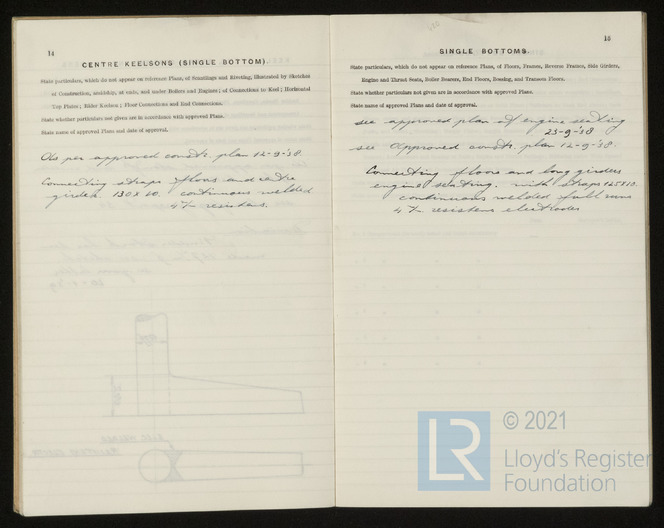 14
CENTRE KEELSONS (SINGLE BOTTOM).
State particulars, which do not appear on reference Plans, of Scantlings and Riveting, illustrated by Sketches
of Construction, amidship, at ends, and under Boilers and Engines; of Connections to Keel; Horizontal
Top Plates; Rider Keelson; Floor Connections and End Connections.
State whether particulars not given are in accordance with approved Plans.
State name of approved Plans and date of approval.
As per approved constr. plan 12-9-'38.
Connecting straps floors and centre
girder 130 x 10. continuous welded
4 7/m resistens.
15
SINGLE BOTTOMS.
State particulars, which do not appear on reference Plans, of Floors, Frames, Reverse Frames, Side Girders,
Engine and Thrust Seats, Boiler Bearers, End Floors, Bossing, and Transom Floors.
State whether particulars not given are in accordance with approved Plans.
State name of approved Plans and date of approval.
see approved plan of engine seating
23-9-'38
see approved constr. plan 12-9-'38.
Connecting floors and long girders
engine seating. with straps 125x10.
continuous welded full runs
4 7/m resistens electrodes
LR
© 2021
Lloyd's Register
Foundation